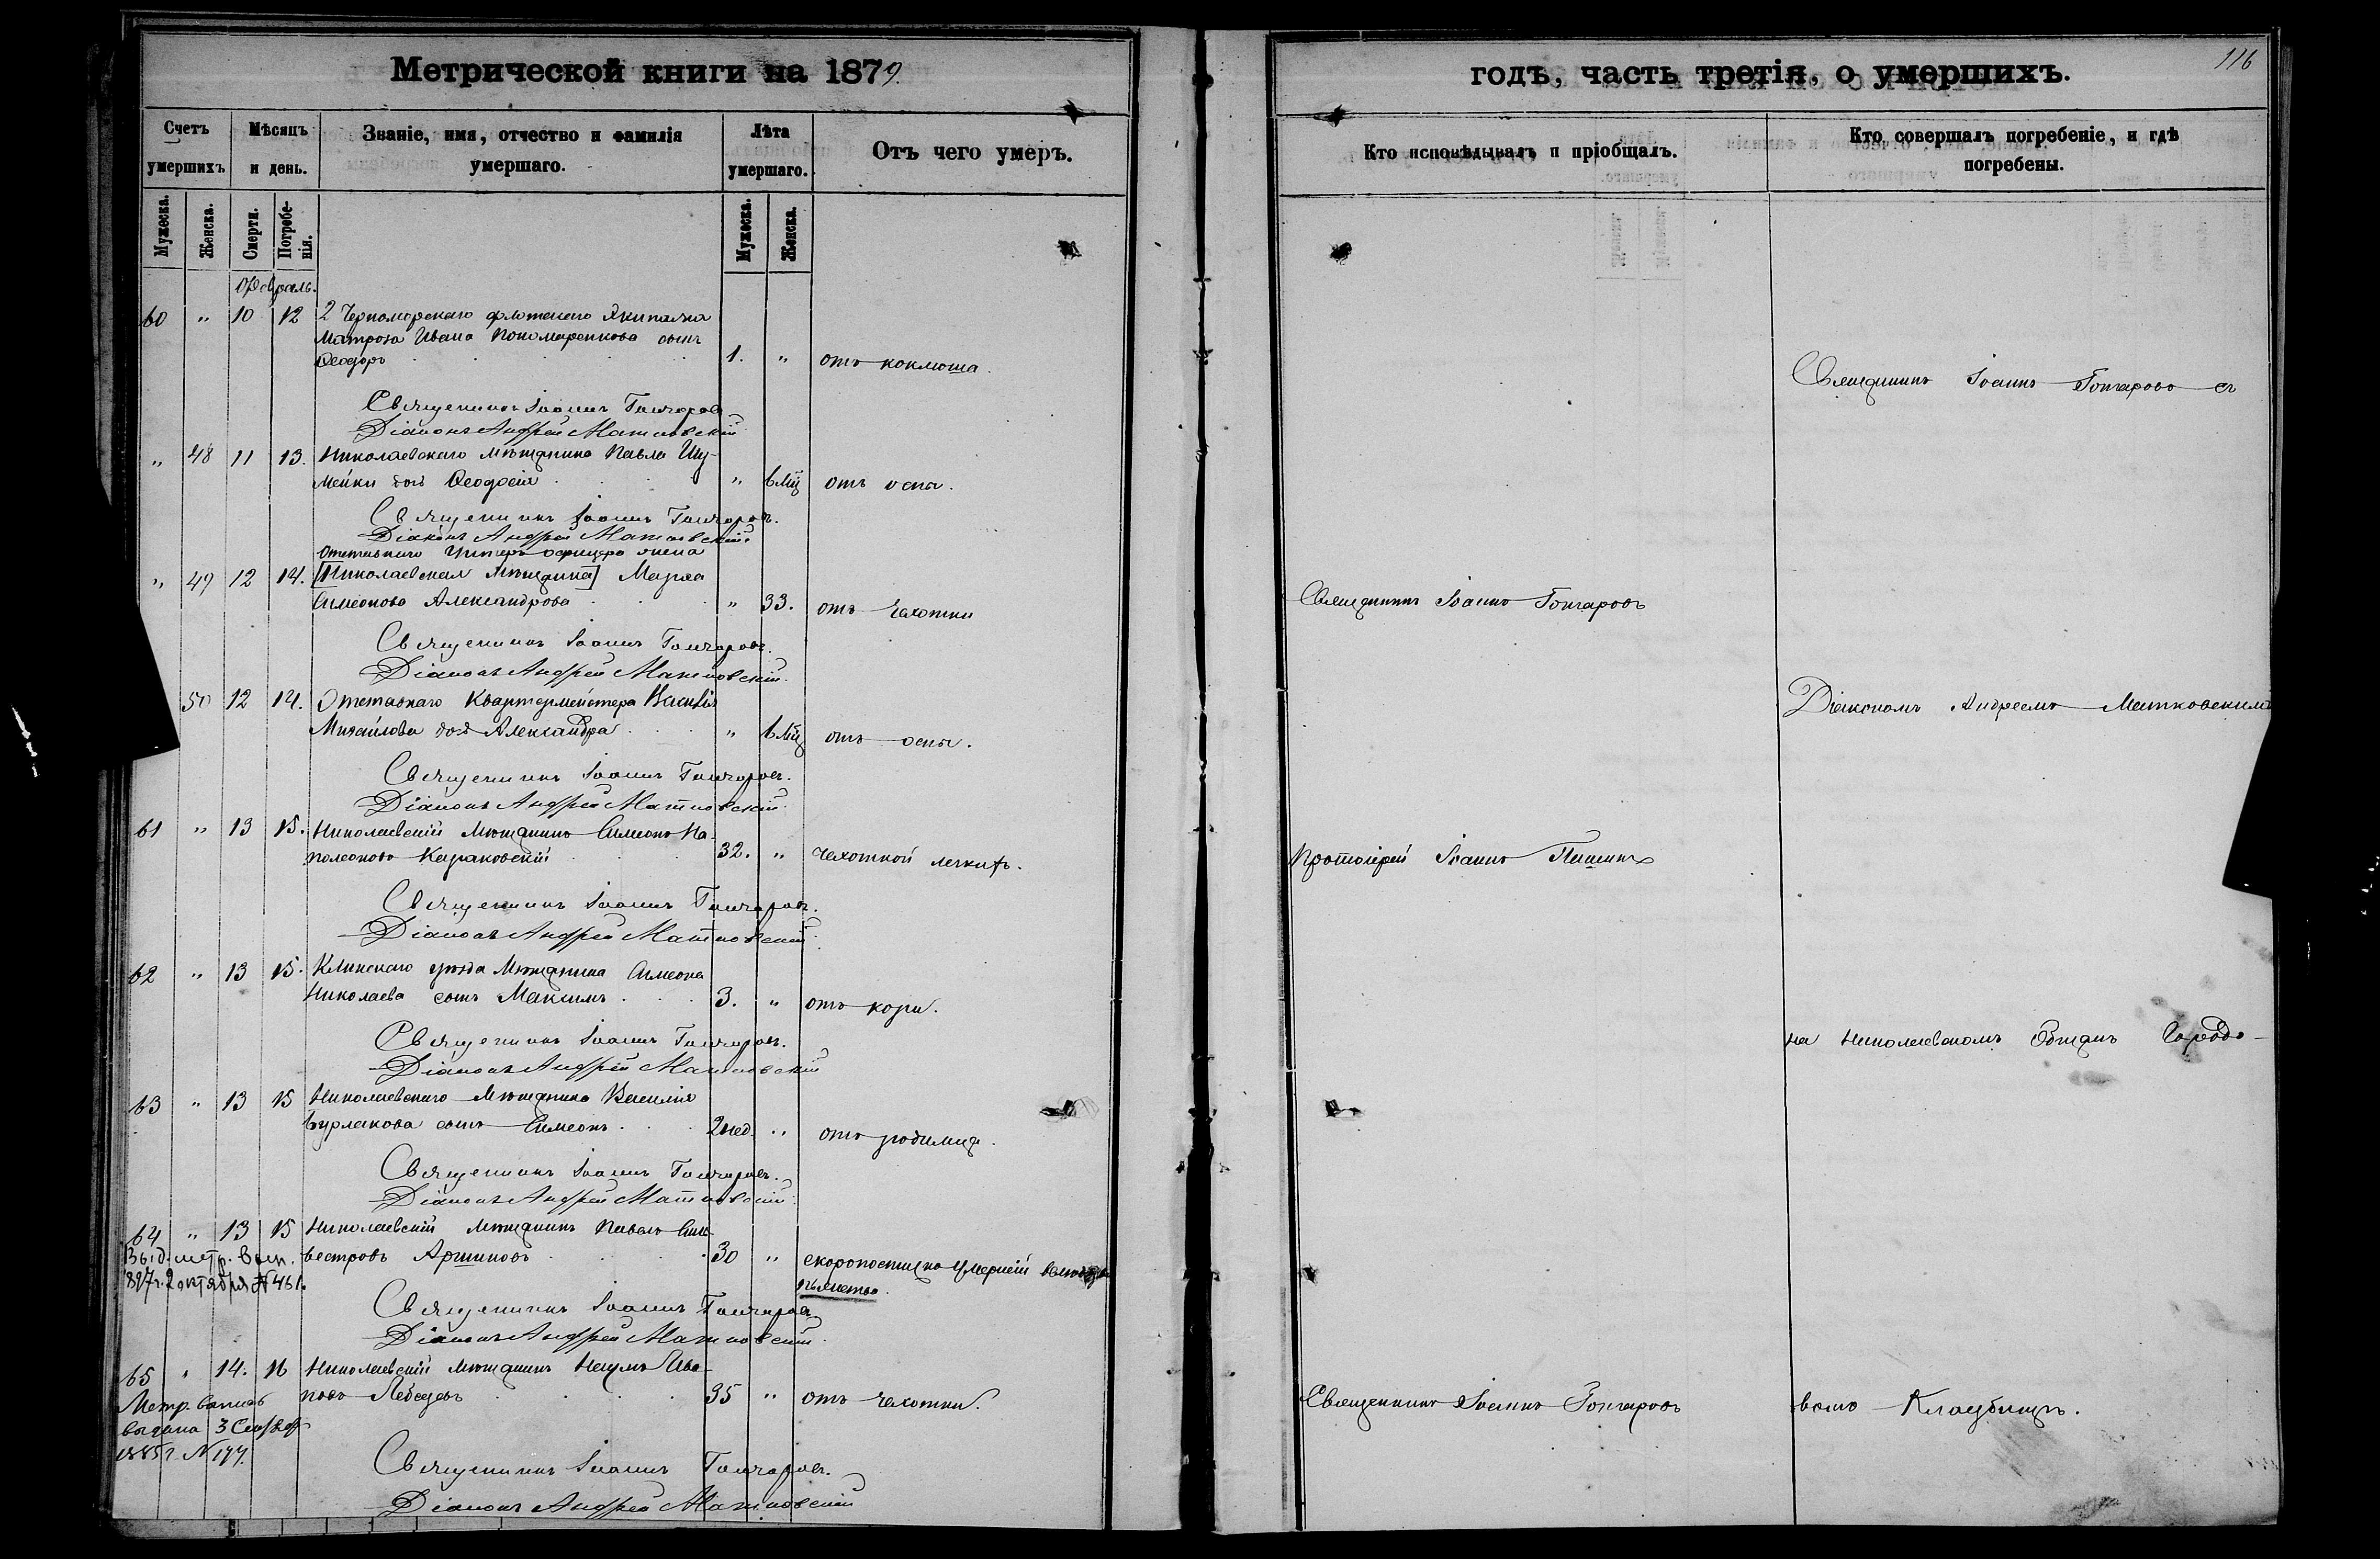 Метрической книги на 1879.
годъ, часть третія, о умершихъ.
116
Счетъ умершихъ
Мѣсяцъ и день.
Званіе, имя, отчество и фамилія умершаго.
Лѣта умершаго.
Отъ чего умеръ.
Кто исповѣдывалъ и пріобщалъ.
Кто совершалъ погребеніе, и гдѣ погребены.
Мужеска.
Женска.
Смерти.
Погребенія.
Мужеска.
Женска.
Февраль.
60 " 10 12 2 Черноморскаго флотскаго Экипажа
матроса Ивана Пономаренкова сынъ
Ѳеодоръ 1. " отъ коклюша.
Священникъ Іоаннъ Гончаровъ съ
Священникъ Іоаннъ Гончаровъ
Діаконъ Андрей Матковскій
" 48 11 13. Николаевскаго мѣщанина Павла Шу-
мейки дочь Ѳеодосія " 6 мц отъ оспы.
Священникъ Іоаннъ Гончаровъ.
Діаконъ Андрей Матковскій.
Отставнаго Унтеръ офицера жена
" 49 12 14. [Николаевская мѣщанка] Марѳа
Симеонова Александрова " 33. отъ чахотки
Священникъ Іоаннъ Гончаровъ
Священникъ Іоаннъ Гончаровъ.
Діаконъ Андрей Матковскій.
50 12 14. Отставнаго Квартермейстера Василія
Михайлова дочь Александра " 6 мц отъ оспы.
Діакономъ Андреемъ Матковскимъ
Священникъ Іоаннъ Гончаровъ.
Діаконъ Андрей Матковскій.
61 " 13 15. Николаевскій мѣщанинъ Симеонъ На-
полеоновъ 32. " чахоткой легкихъ.
Протоіерей Іоаннъ
Священникъ Іоаннъ Гончаровъ.
Діаконъ Андрей Матковскій.
62 " 13 15. Клинскаго уѣзда мѣщанина Симеона
Николаева сынъ Максимъ 3. " отъ кори.
Священникъ Іоаннъ Гончаровъ.
Діаконъ Андрей Матковскій
на Николаевскомъ Общемъ Городс-
63 " 13 15 Николаевскаго мѣщанина Василія
Бурлакова сынъ Симеонъ. 2 нед. " отъ родимца.
Священникъ Іоаннъ Гончаровъ.
Діаконъ Андрей Матковскій.
64 " 13 15 Николаевскій мѣщанинъ Павелъ Силь-
вестровъ Аршиновъ 30 " скоропостижно умершій
Выд. метр. вып.
897 г. 2 октября № 461.
пьянства.
Священникъ Іоаннъ Гончаровъ
Діаконъ Андрей Матковскій.
65 " 14. 16 Николаевскій мѣщанинъ Наумъ Ива-
новъ Лебедевъ 35 " отъ чахотки.
Священникъ Іоаннъ Гончаровъ
комъ Кладбищѣ.
Метр.
выдана 3
1885 г. № 177.
Священникъ Іоаннъ Гончаровъ.
Діаконъ Андрей Матковскій